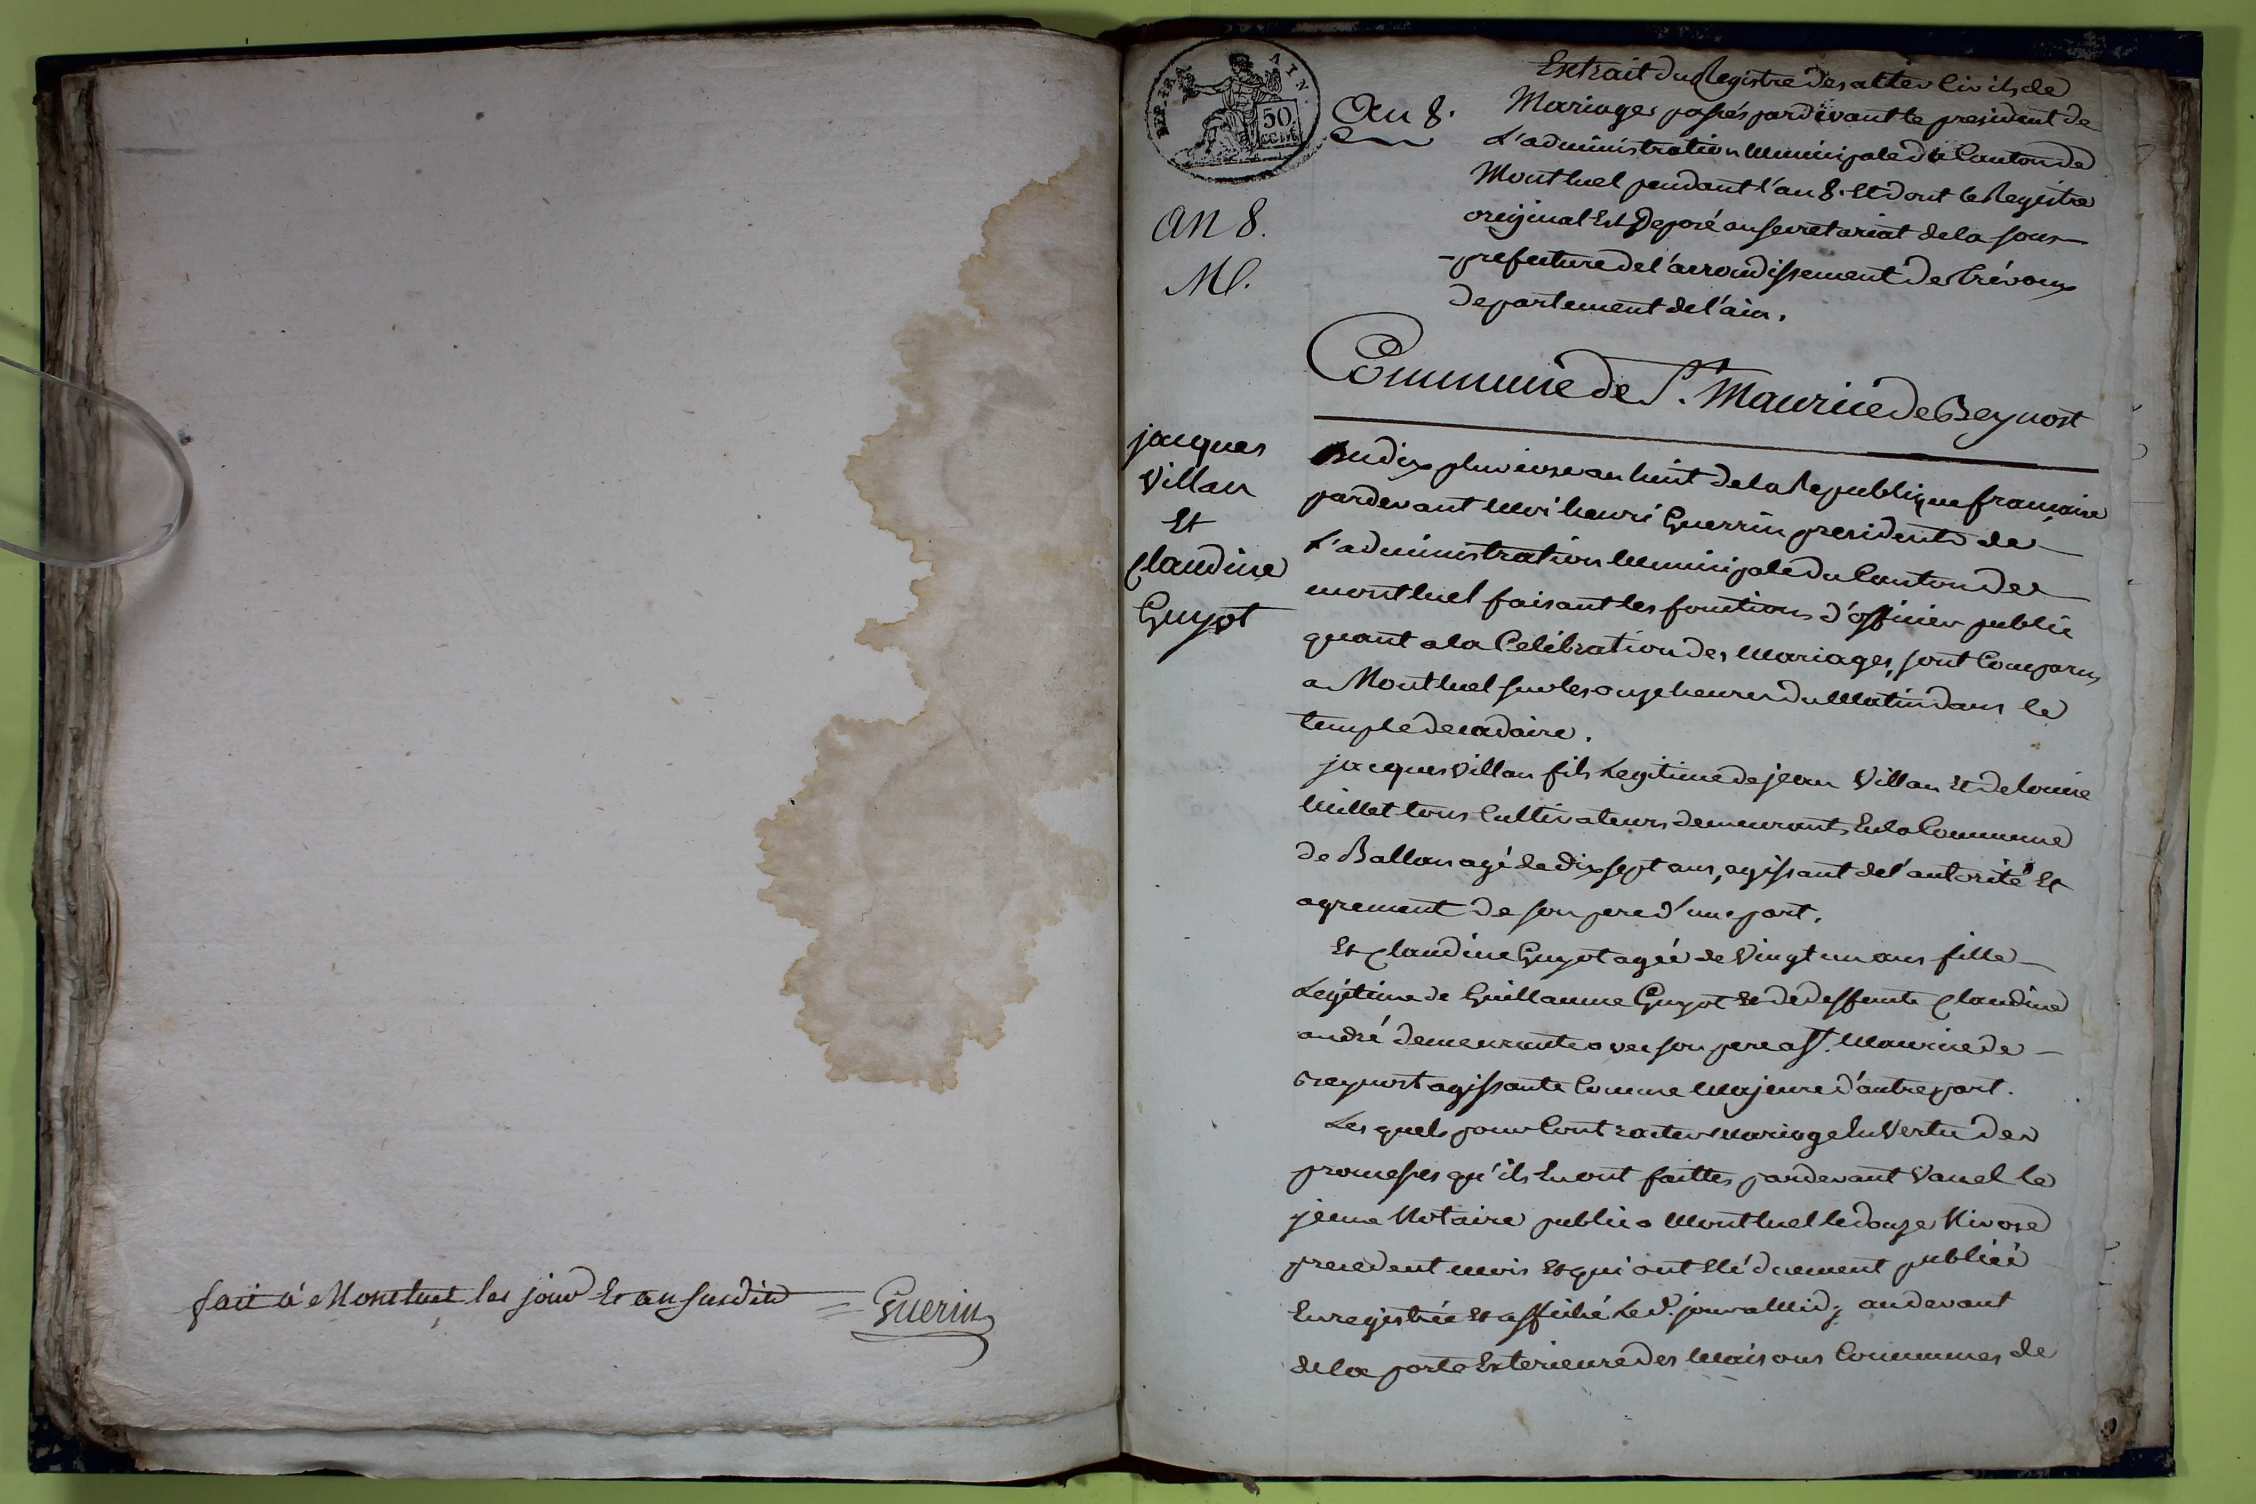 fait à Montluel les jour et an susdit = Guerin
REP. FRA. AIN.
50 CENT.
An 8.
AN 8.
M.
Extrait du Registre des actes Civils de
Mariages passés pardevant le president de
L'administration Municipale du Canton de
Montluel pendant l'an 8. Et dont le Registre
original Est Deposé au secretariat de la sous
-prefecture de l'arrondissement de Trévoux
Departement de l'ain.
Commune de St. Maurice de Beynost
jacques
Villan
Et
Claudine
Guyot
Du dix pluviose an huit de la Republique francaise
pardevant Moi henri Guerrin president de
L'administration Municipale du Canton de
montluel faisant les fonctions d'officier public
quant a la Celébration des Mariages, sont Comparus
a Montluel sur les onze heures du Matin dans le
temple decadaire.
jacques Villan fils Legitime de jean Villan Et de louise
Millet tous Cultivateurs demeurants En la Commune
de Ballan agé de dix sept ans, agissant de l'autorité Et
agrement de son pere d'une part.
Et Claudine Guyot agée de Vingt un ans fille
Legitime de Guillaume Guyot Et de deffunte Claudine
andré demeurante avec son pere a St. Maurice de
Beynost agissante Comme Majeure d'autre part.
Les quels pour Contracter Mariage En Vertu des
promesses qu'ils En ont faittes pardevant Vanel le
jeune Notaire public a Montluel le douze Nivose
precedent mois Et qui ont Eté duement publiée
Enregistrée Et affiché Le d. jour a Midy au devant
de la porte Exterieure des Maisons Communes de